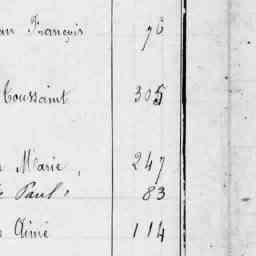 François 76
Toussaint 305
Marie, 247
Paul, 83
Aimé 114